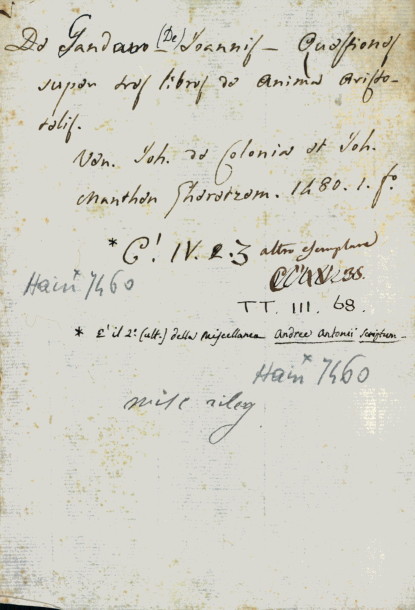 De Gandavo (De) Joannis - Quæstiones
super tres libros de Anima Aristo-
telis.
Ven. Joh. de Colonia et Joh.
Manthen Gherretzem. 1480. 1. fo.
* C! IV. 2. 3 altro esemplare
TT. III. 68.
Hain* 7460
* E' il 2º. (ult.) della Miscellanea Andree Antonii Scriptum
Hain* 7460